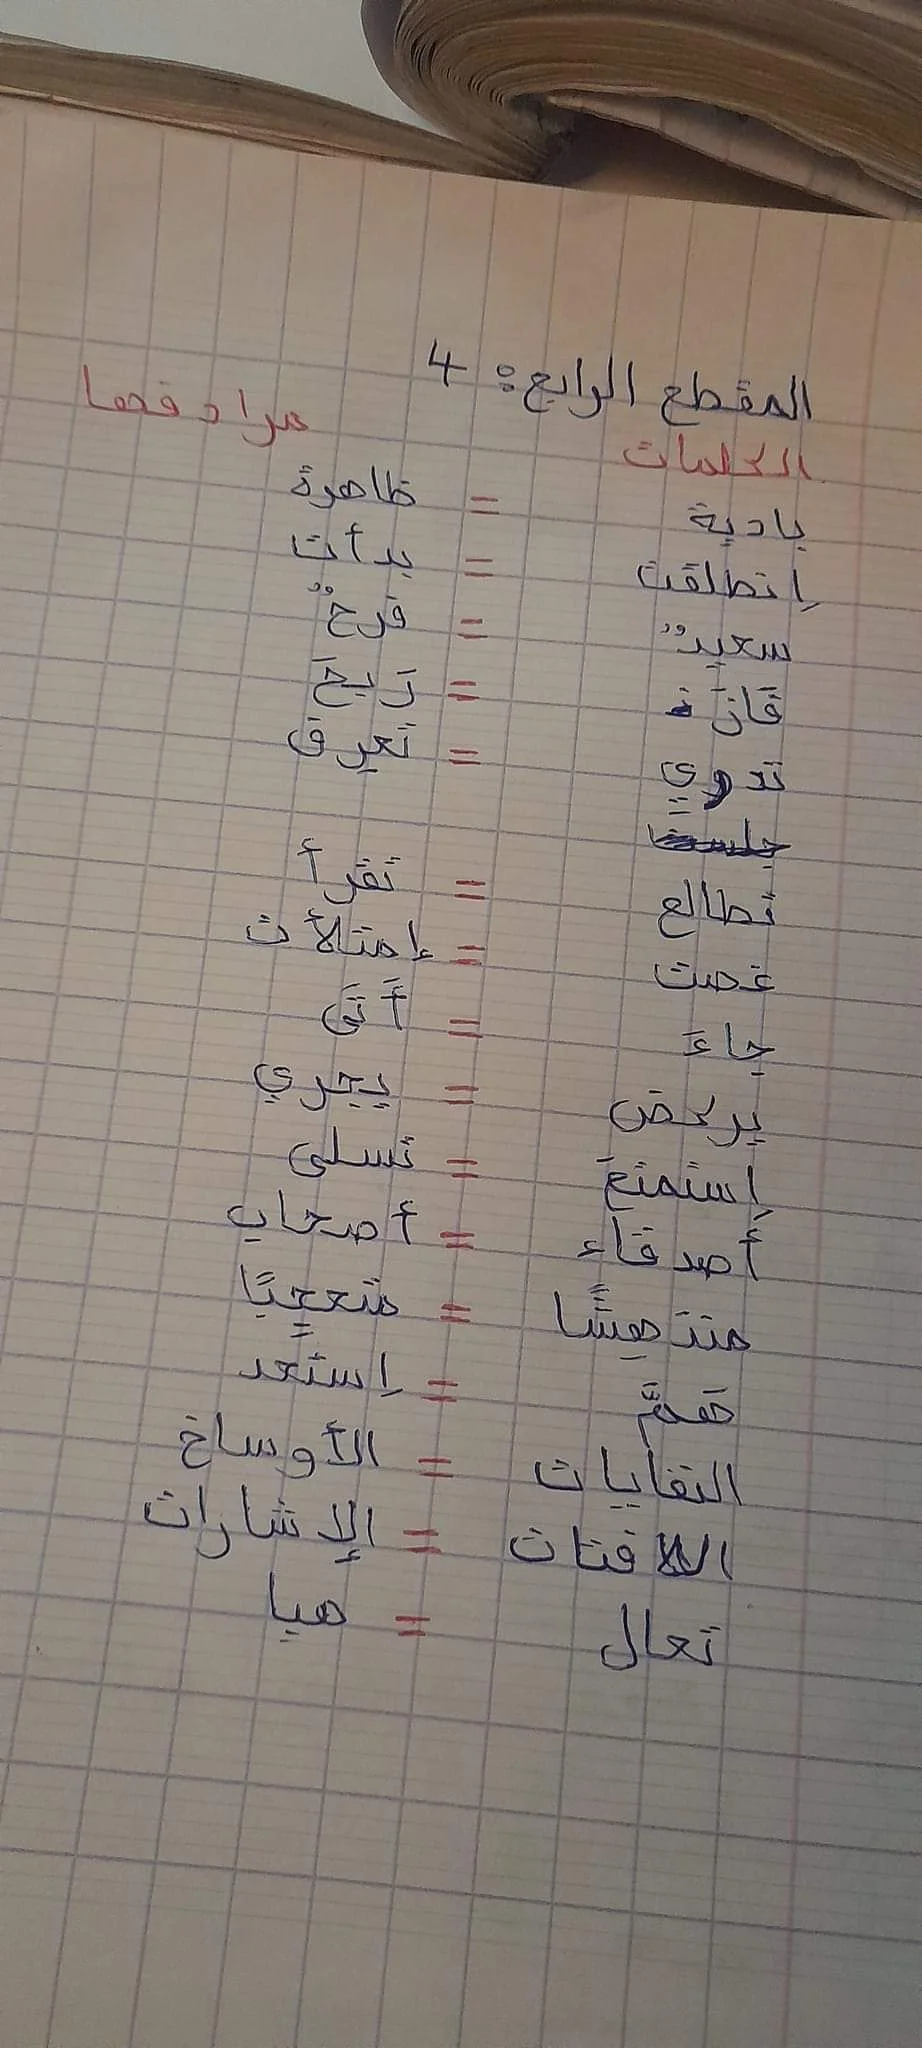 المقطع الرابع: 4
الكلمات مرادفها
بادية = ظاهرة
إنطلقت = بدأت
سعيدٌ = فرحٌ
فَازَ = رَبحَ
تدري = تعرف
تطالع = تقرأ
غصت = إمتلأت
جاءَ = أَتَى
يركض = يجري
إستمتعَ = تسلى
أصدقاء = أصحاب
مندهِشًا = متعجِبًا
هَمَّ = إستعد
النفايات = الأوساخ
اللافتات = الإشارات
تعال = هيا